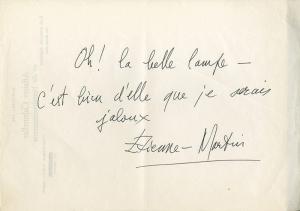 Oh! la belle lampe –
C'est bien d'elle que je serais
jaloux
Etienne-Martin